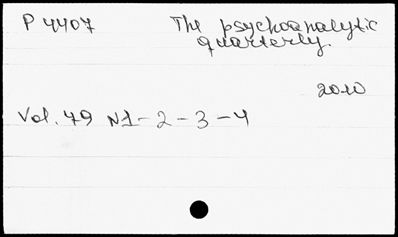 P 4407 The psychoanalytic
quarterly.
2010
Vol. 79 N1-2-3-4